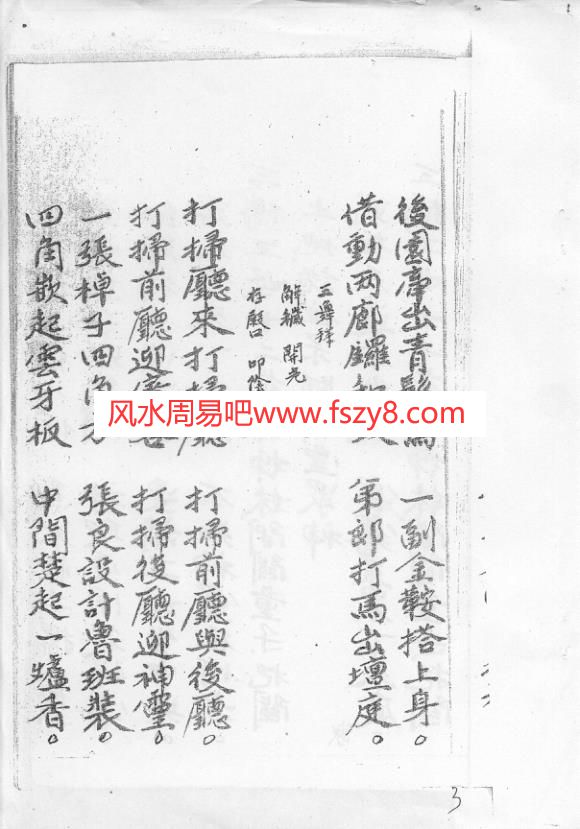 後園牵出青 一副金鞍搭上身。
借動两廊鑼 弟郎打馬出壇庭。
三舞拜
解穢 開光
打掃廳來打掃廳 打掃前廳與後廳。
打掃前廳迎賓客 打掃後廳迎神靈。
一張棹子四角方 張良設計魯班装。
四角嵌起雲牙板 中間楚起一爐香。
风水周易吧www.fszy8.com
3